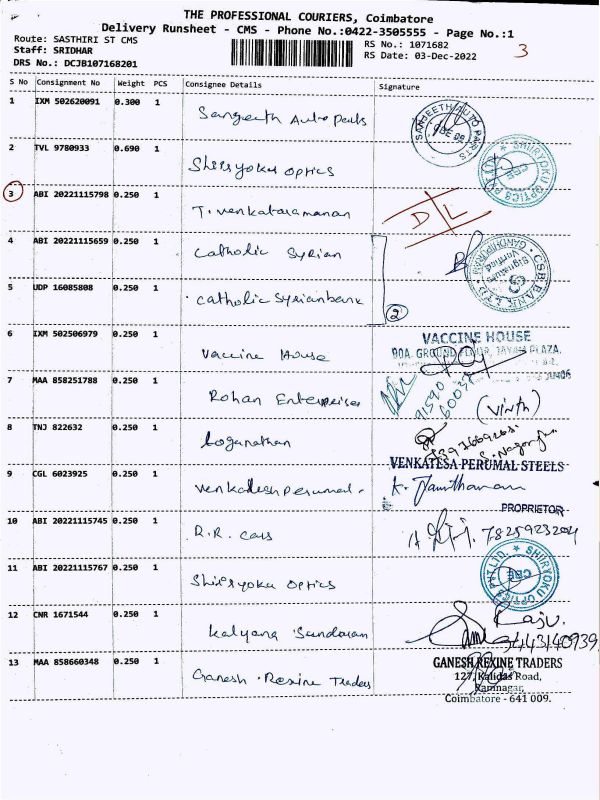 THE PROFESSIONAL COURIERS, Coimbatore
Delivery Runsheet - CMS - Phone No.:0422-3505555 - Page No.:1
Route: SASTHIRI ST CMS
Staff: SRIDHAR
DRS No.: DCJB107168201
RS No.: 1071682
RS Date: 03-Dec-2022
3
S No Consignment No Weight PCS Consignee Details Signature
1 IXM 502620091 0.300 1 Sangeeth Auto Parts
SANGEETH AUTO PARTS
2 TVL 9780933 0.690 1 Shiiryoku Optics
SHIIRYOKU OPTICS PVT LTD. CBE
3 ABI 20221115798 0.250 1 T. Venkataramanan
D L
4 ABI 20221115659 0.250 1 Catholic Syrian
CSB BANK LTD GANDHIPURAM Signature Verified
5 UDP 16085808 0.250 1 Catholic Syrian bank
2
6 IXM 502506979 0.250 1 Vaccine House
VACCINE HOUSE
GROUND FLOOR, PLAZA,
7 MAA 858251788 0.250 1 Rohan Enterprises
91590
60038
(Vinth)
8 TNJ 822632 0.250 1 Loganathan
9 CGL 6023925 0.250 1 Venkadesh perumal.
VENKATESA PERUMAL STEELS
PROPRIETOR
10 ABI 20221115745 0.250 1 R.R. Cars
7825923204
11 ABI 20221115767 0.250 1 Shiiryoku Optics
SHIIRYOKU OPTICS PVT LTD. CBE
12 CNR 1671544 0.250 1 Kalyana Sundaram
Raju.
9443140939
13 MAA 858660348 0.250 1 Ganesh . Rexine Traders
GANESH REXINE TRADERS
127, Kalidas Road,
Ramnagar,
Coimbatore - 641 009.